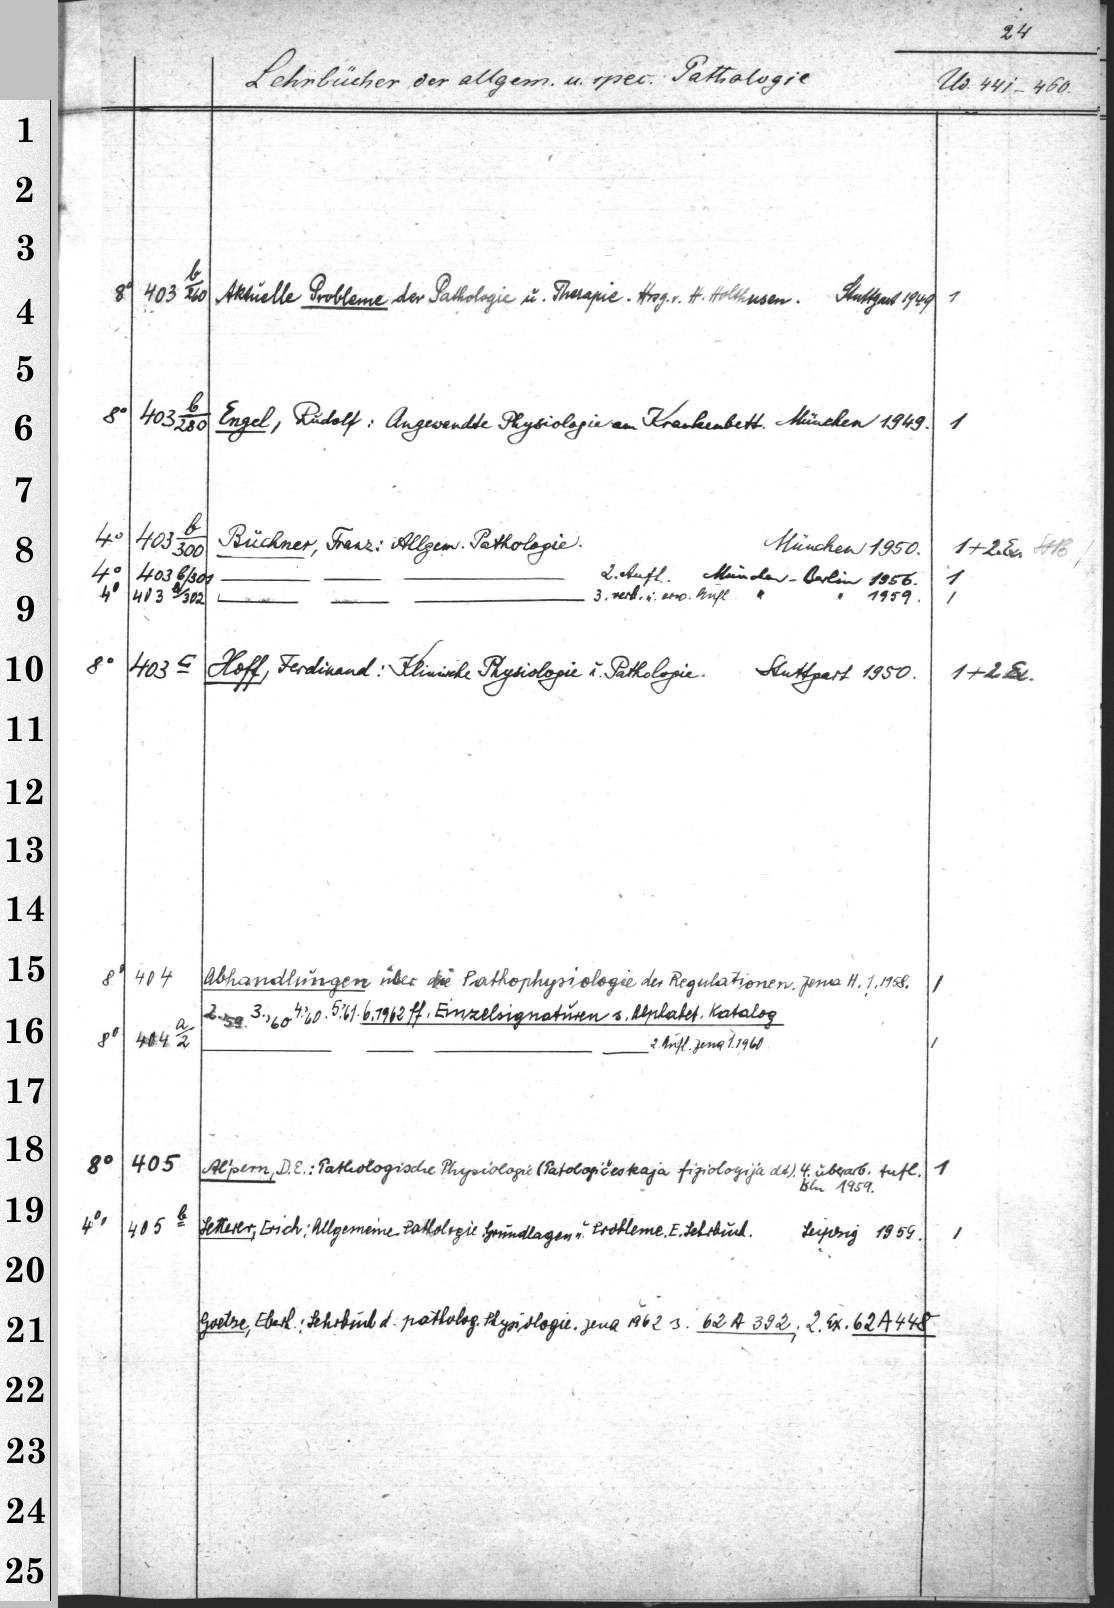 24
Lehrbücher der allgem. u. spec. Pathologie Ud. 441-460.
1
2
3
8° 403 b/260 Aktuelle Probleme der Pathologie u. Therapie. Hrsg. v. H. Holthusen. Stuttgart 1949 1
4
5
8° 403 b/280 Engel, Rudolf: Angewandte Physiologie am Krankenbett. München 1949. 1
6
7
4° 403 b/300 Büchner, Franz: Allgem. Pathologie. München 1950. 1+2.Ex.
8
4° 403 b/301 2. Aufl. München-Berlin 1956. 1
4° 403 b/302 3. verb. u. erw. Aufl. " " 1959. 1
9
10 8° 403 c Hoff, Ferdinand: Klinische Physiologie u. Pathologie. Stuttgart 1950. 1+2 Ex.
11
12
13
14
15 8° 404 Abhandlungen über die Pathophysiologie der Regulationen. Jena H. 1.1958. 1
2.59. 3.,60 4.,60. 5.,61. 6.1962 ff. Einzelsignaturen s. Alphabet. Katalog
16 8° 404 a/2 2. Aufl. Jena 1.1960. 1
17
18 8° 405 Al'pern, D.E.: Pathologische Physiologie (Patologičeskaja fiziologija dt). 4. überarb. Aufl. 1
Bln 1959.
19 4° 405 b Letterer, Erich: Allgemeine Pathologie. Grundlagen u. Probleme. E. Lehrbuch. Leipzig 1959. 1
20
21 Goetze, Eberh.: Lehrbuch d. patholog. Physiologie. Jena 1962 s. 62 A 392, 2. Ex. 62 A 448
22
23
24
25